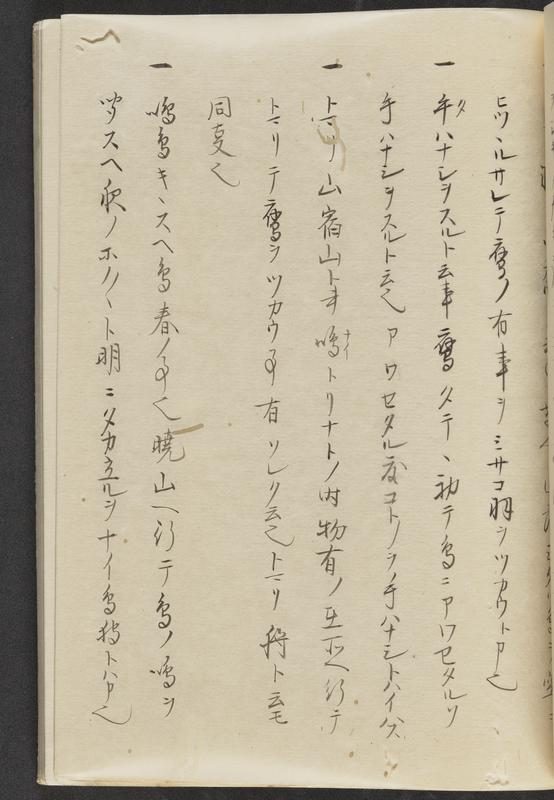 ヒツルサレテ鷹ノ有事ヲミサコ羽ヲツカウト申也
一 手ハナシヲスルト云事鷹タテヽ初テ鳥ニアワセタルヲ
手ハナシヲスルト云也アワセタル度コトノヲ手ハナシトハイハズ
一 トマリ山宿山トキ鳴トリナトノ時物有ノ在所ヘ行テ
トマリテ鷹ヲツカウ事有ソレヲ云也トマリ狩ト云モ
同事也
一 鳴鳥キヽスヘ鳥春ノ事也暁山ヘ行テ鳥ノ鳴ヲ
聞スヘ夜ノホノ〱ト明ニタカ立ルヲナイ鳥狩トハ申也